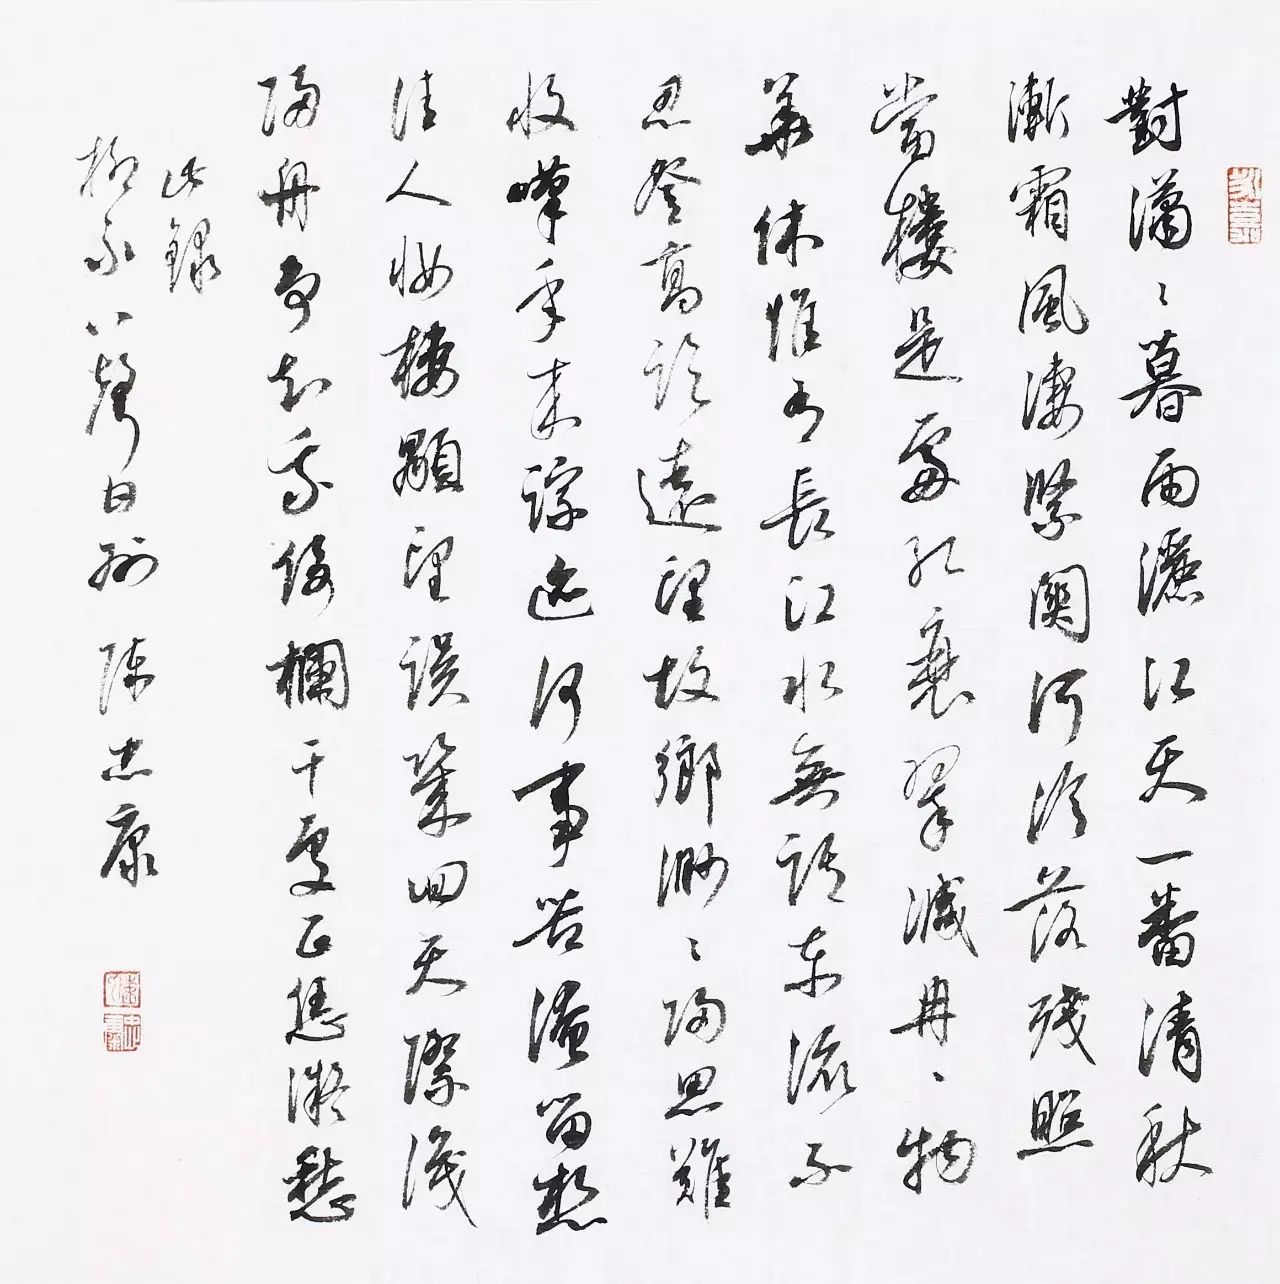 對瀟〻暮雨灑江天一番清秋
漸霜風凄緊關河冷落殘照
當樓是處紅衰翠減冉〻物
華休惟有長江水無語東流不
忍登高臨遠望故鄉渺〻歸思難
收嘆年來蹤迹何事苦淹留想
佳人妝樓顒望誤幾回天際識
歸舟爭知我倚欄干處正恁凝愁
此錄
柳永八聲甘州 陳忠康